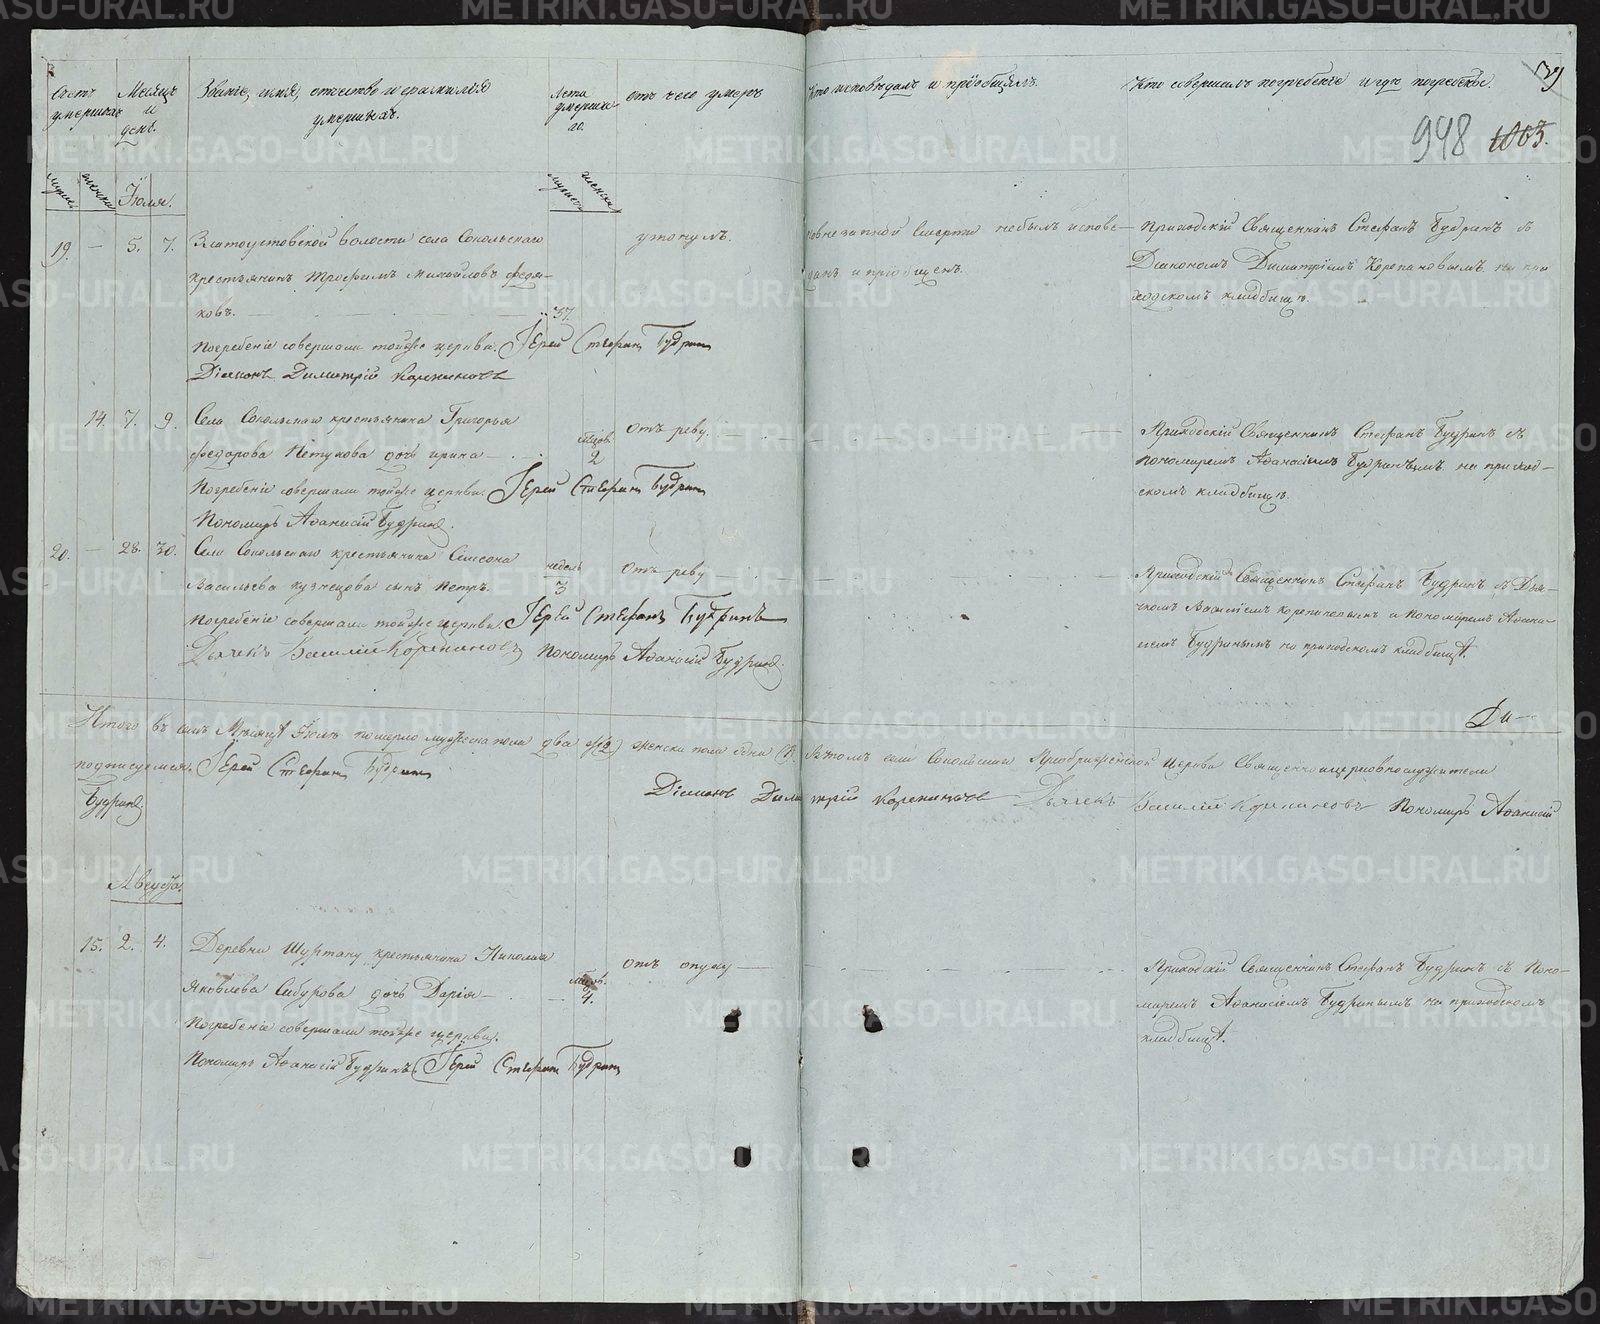 Счетъ умершихъ
Месяцъ и день.
Званіе, имя, отчество и фамилія умершихъ.
Лета умершаго.
отъ чего умеръ
Кто исповѣдалъ и пріобщалъ.
Кто совершалъ погребеніе и где погребены.
948 1063.
Іюля.
19. — 5. 7. Златоустовской волости села Сокольскаго
крестьянинъ Трофимъ Михайловъ Федя-
ковъ. 37.
утонулъ.
небылъ испове-
данъ и пріобщенъ.
Приходскій Священникъ Стефанъ Будринъ съ
Діакономъ Димитріемъ Корепановымъ на при
ходскомъ кладбищѣ.
Погребеніе совершали тойже церкви. Іерей Стефанъ Будринъ
Діаконъ Димитрій Корепановъ
14. 7. 9. Села Сокольскаго крестьянина Григорья
Федорова Петухова дочь Ирина
2
Отъ реву.
Приходскій Священникъ Стефанъ Будринъ съ
пономаремъ Аѳанасіемъ Будринымъ на приход-
скомъ кладбищѣ.
Погребеніе совершали тойже церкви. Іерей Стефанъ Будринъ
Пономарь Аѳанасій Будринъ.
20. — 28. 30. Села Сокольскаго крестьянина Симеона
Васильева Кузнецова сынъ Петръ.
недель
3
Отъ реву
Приходскій Священникъ Стефанъ Будринъ съ Дья-
чкомъ Василіемъ Корепановымъ и Пономаремъ Аѳана-
сіемъ Будринымъ на приходскомъ кладбищѣ.
Погребеніе совершали тойже церкви. Іерей Стефанъ Будринъ
Дьячекъ Василій Корепановъ Пономарь Аѳанасій Будринъ.
Ди-
Итого въ семъ Месяцѣ Іюлѣ померло мужеска пола два (2) женска пола одна (1). Въ томъ села Сокольскаго Преображенской церкви Священноицерковнослужители
подписуемся. Іерей Стефанъ Будринъ
Діаконъ Димитрій Корепановъ Дьячекъ Василій Корепановъ Пономарь Аѳанасій
Будринъ
Августа.
15. 2. 4. Деревни Шуртану крестьянина Николая
Яковлева Сабурова дочь Дарія
4.
Отъ опуху
Приходскій Священникъ Стефанъ Будринъ съ Поно-
маремъ Аѳанасіемъ Будринымъ на приходскомъ
кладбищѣ.
Погребеніе совершали тойже церкви.
Пономарь Аѳанасій Будринъ. Іерей Стефанъ Будринъ
METRIKI.GASO-URAL.RU